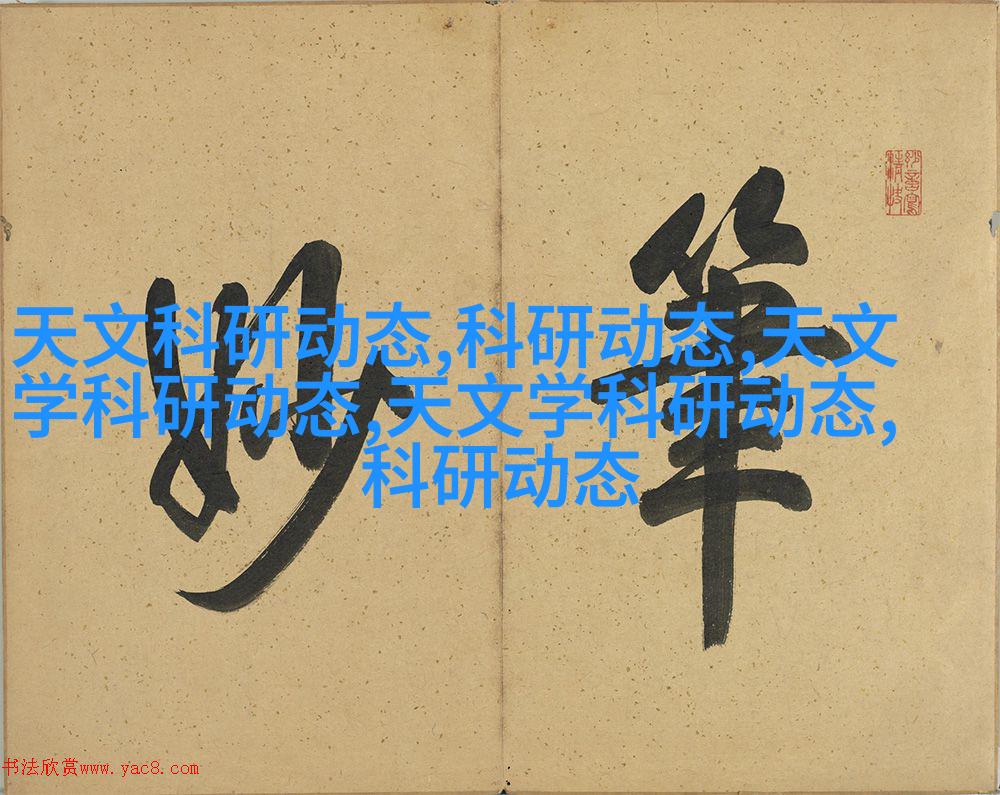 筆
妙
天文科研动态,科研动态,天文
学科研动态,天文学科研动态,
科研动态
书法欣赏www.yac8.com